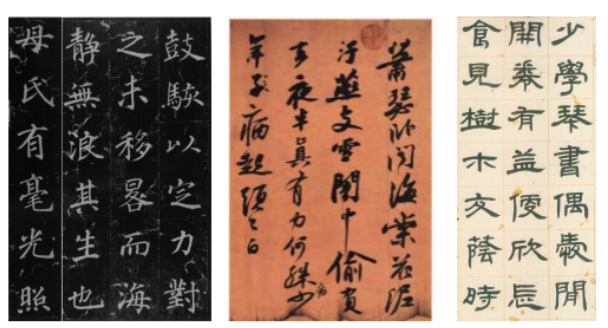 鼓駭以定力對
之未移晷而海
靜無浪其生也
母氏有毫光照
蕭瑟卧聞海棠花泥
汙燕支雪闇中偷負
去夜半真有力何殊少
年子病起頭已白
少學琴書偶愛閒
開卷有益便欣忘
食見樹木交蔭時